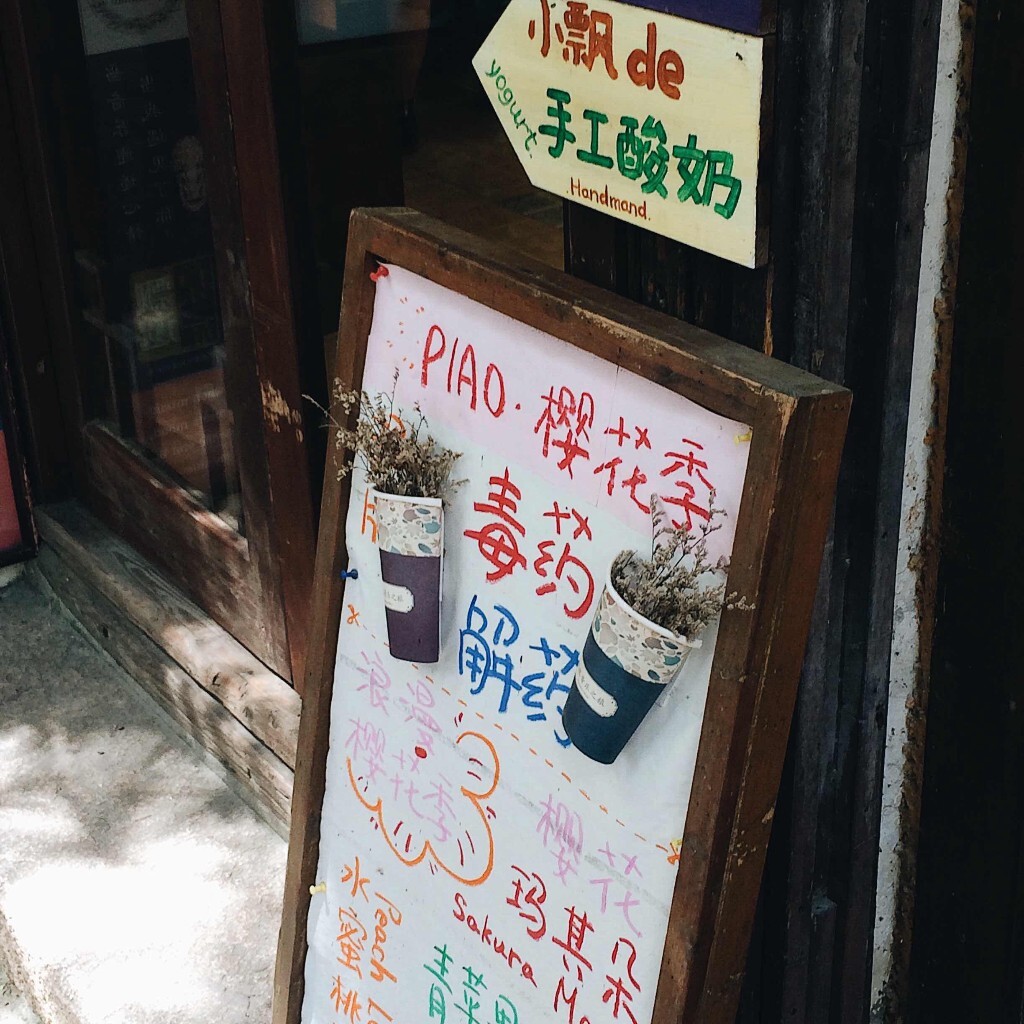 小飘 de
yogurt.
手工酸奶
Handmand.
PIAO. 樱花季
毒药
解药
浪漫
樱花季
樱花
玛其朵
Sakura
水蜜桃
Peach
青苹果